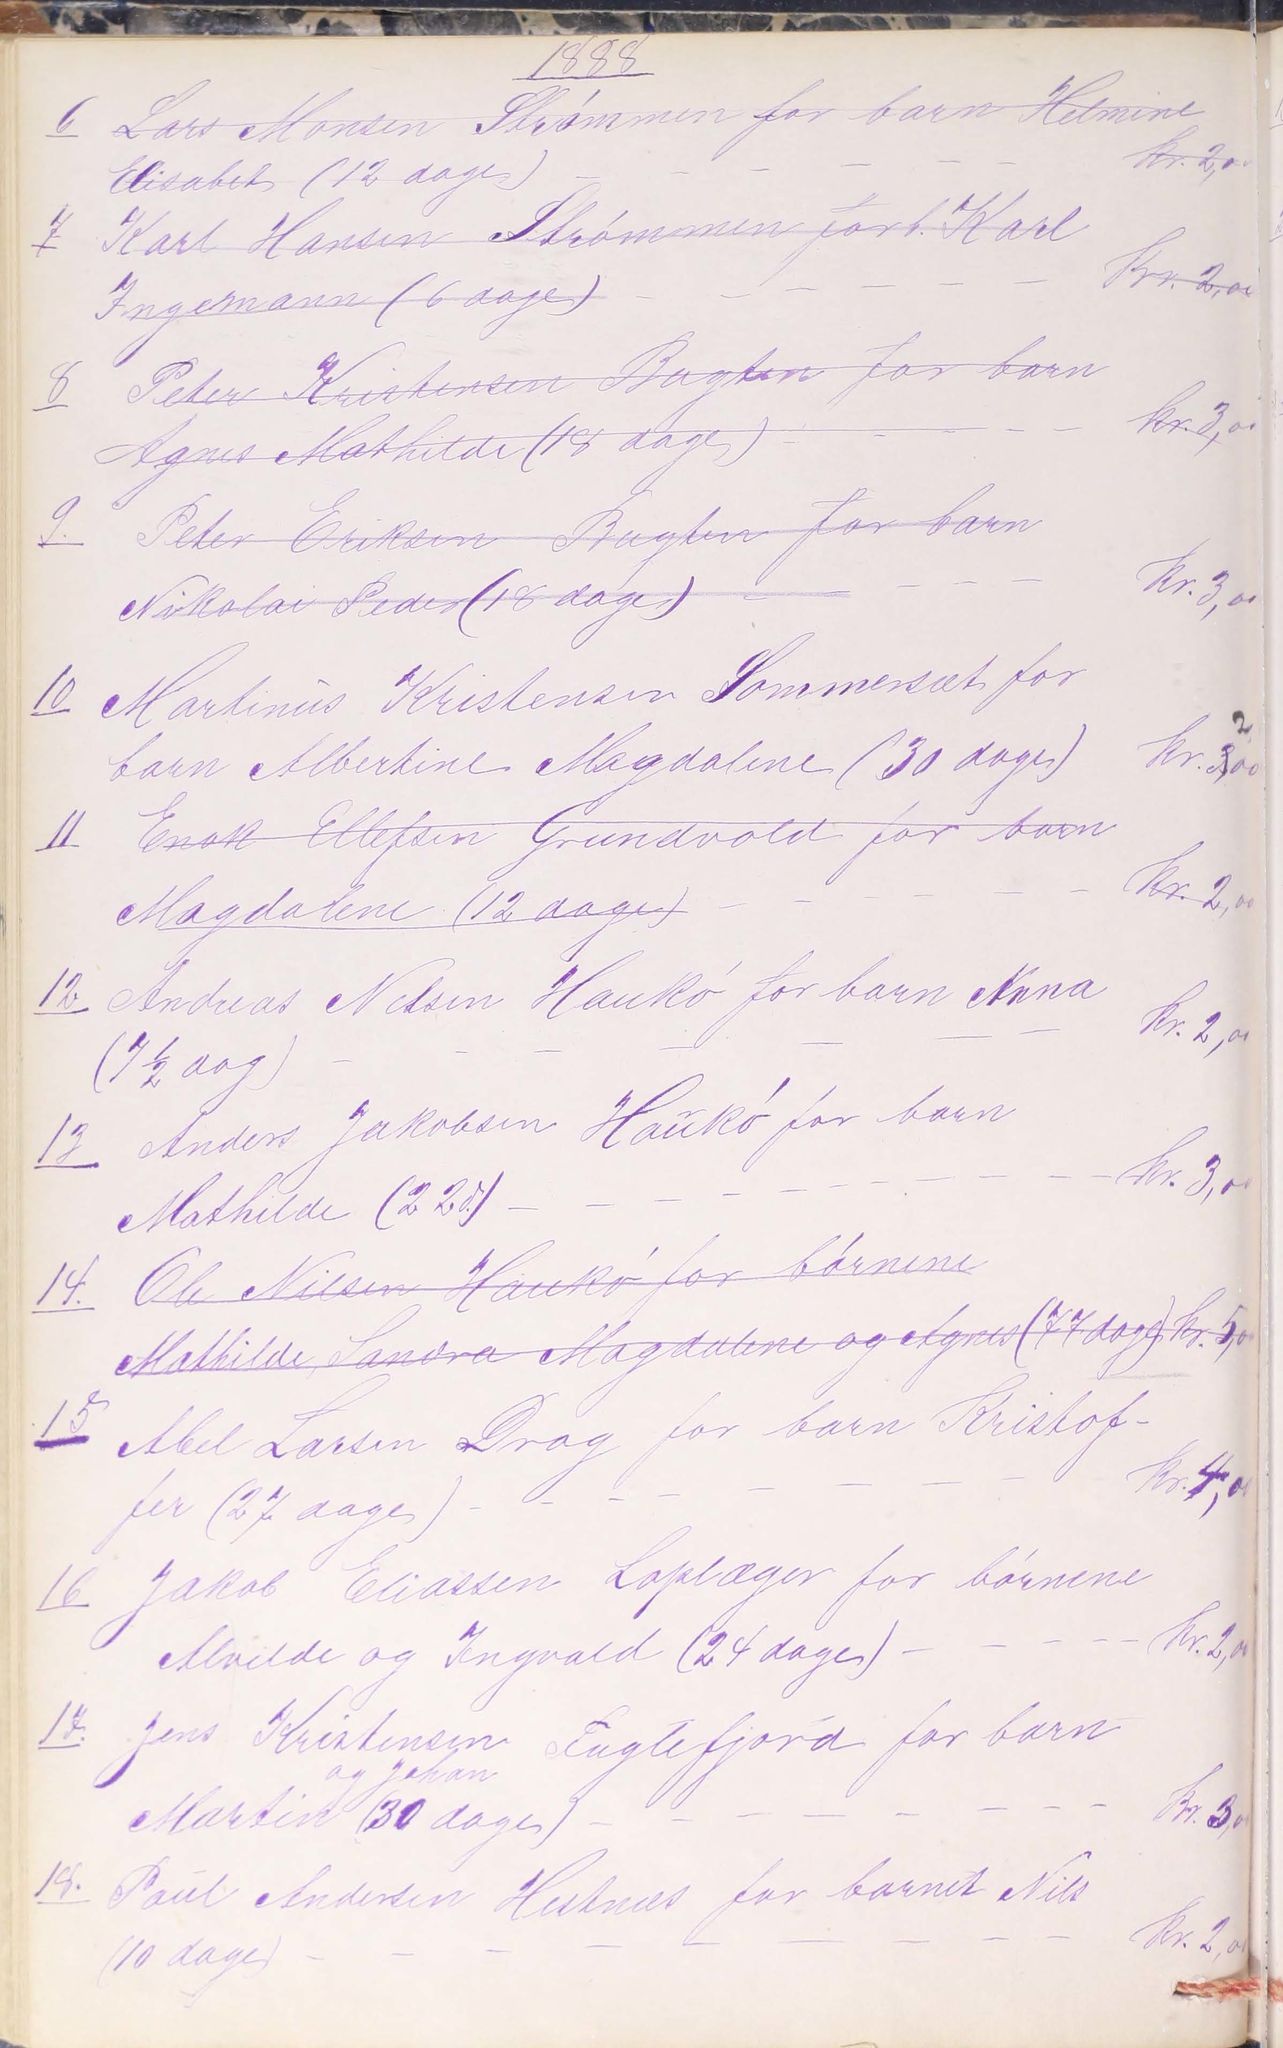 1888
6 Lars Monsen Strømmen for barn Helmine
Elisabet (12 dage) - - - - - - kr. 2,00
7 Karl Hansen Strømmen for b. Karl
Ingemann (6 dage) - - - - - - - Kr. 2,00
8 Peter Kristensen Bugten for barn
Agnes Mathilde (18 dage) - - - - - - kr. 3,00
9. Peter Eriksen Bugten for barn
Nikolai Peder (18 dage) - - - - - kr. 3,00
10 Martinus Kristensen Sommersæt for
barn Albertine Magdalene (30 dage) kr. 3,00 2,
11 Enok Ellefsen Grundvold for barn
Magdalene (12 dage) - - - - - - - kr. 2,00
12 Andreas Nilsen Haukø for barn Anna
(7 1/2 dag) - - - - - - - kr. 2,00
13 Anders Jakobsen Haukø for barn
Mathilde (22 d.) - - - - - - - - - - kr. 3,00
14. Ole Nilsen Haukø for børnene
Mathilde, Sandra Magdalene og Agnes (77 dage) kr. 5,00
15 Abel Larsen Drag for barn Kristof-
fer (27 dage) - - - - - - - - kr. 4,00
16 Jakob Eliassen Laplæger for børnene
Alvilde og Ingvald (24 dage) - - - - - - kr. 2,00
17. Jens Kristensen Fuglefjord for barn
og Johan
Martin (30 dage) - - - - - - - - - kr. 3,00
18. Paul Andersen Hestnes for barnet Nils
(10 dage) - - - - - - - - - kr. 2,00